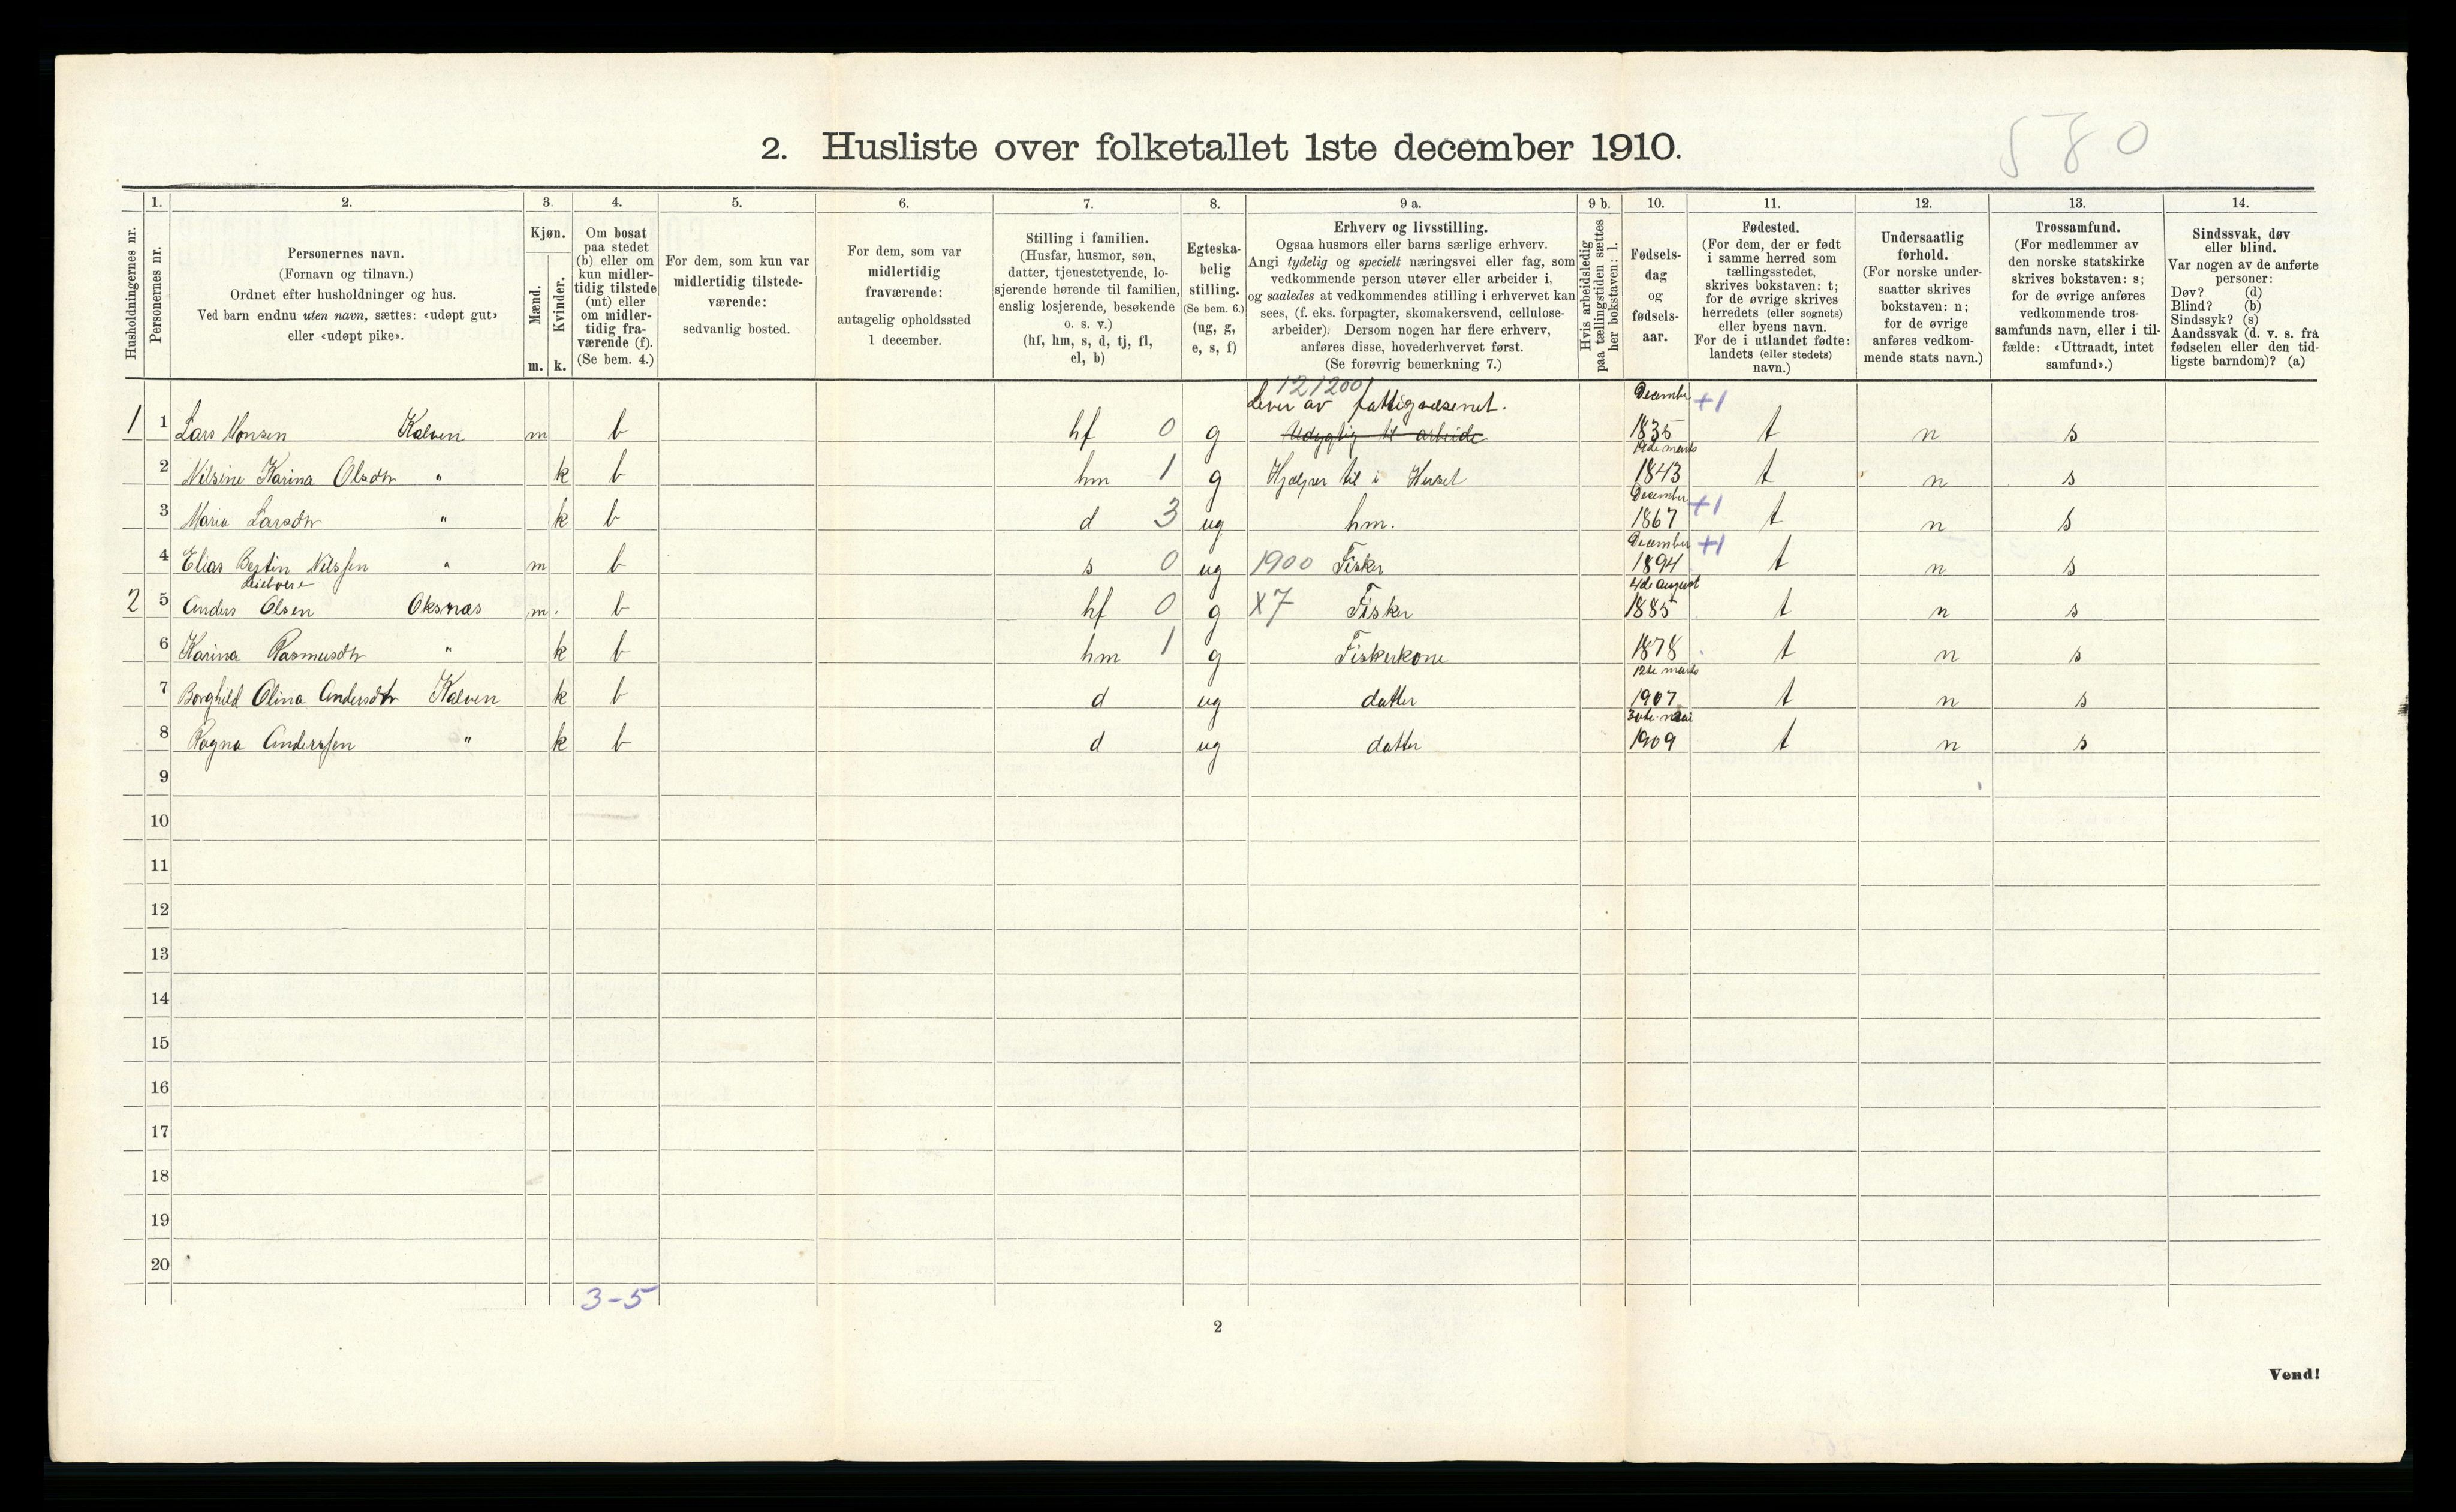 580
2. Husliste over folketallet 1ste december 1910.
Husholdningernes nr.
1.
Personernes nr.
2.
Personernes navn.
(Fornavn og tilnavn.)
Ordnet efter husholdninger og hus.
Ved barn endnu uten navn, sættes: «udøpt gut»
eller «udøpt pike».
3.
Kjøn.
Mænd.
Kvinder.
m. k.
4.
Om bosat
paa stedet
(b) eller om
kun midler-
tidig tilstede
(mt) eller
om midler-
tidig fra-
værende (f).
(Se bem. 4.)
5.
For dem, som kun var
midlertidig tilstede-
værende:
sedvanlig bosted.
6.
For dem, som var
midlertidig
fraværende:
antagelig opholdssted
1 december.
7.
Stilling i familien.
(Husfar, husmor, søn,
datter, tjenestetyende, lo-
sjerende hørende til familien,
enslig losjerende, besøkende
o. s. v.)
(hf, hm, s, d, tj, fl,
el, b)
8.
Egteska-
belig
stilling.
(Se bem. 6.)
(ug, g,
e, s, f)
9 a.
Erhverv og livsstilling.
Ogsaa husmors eller barns særlige erhverv.
Angi tydelig og specielt næringsvei eller fag, som
vedkommende person utøver eller arbeider i,
og saaledes at vedkommendes stilling i erhvervet kan
sees, (f. eks. forpagter, skomakersvend, cellulose-
arbeider). Dersom nogen har flere erhverv,
anføres disse, hovederhvervet først.
(Se forøvrig bemerkning 7.)
9 b.
Hvis arbeidsledig
paa tællingstiden sættes
her bokstaven: l.
10.
Fødsels-
dag
og
fødsels-
aar.
11.
Fødested.
(For dem, der er født
i samme herred som
tællingsstedet,
skrives bokstaven: t;
for de øvrige skrives
herredets (eller sognets)
eller byens navn.
For de i utlandet fødte:
landets (eller stedets)
navn.)
12.
Undersaatlig
forhold.
(For norske under-
saatter skrives
bokstaven: n;
for de øvrige
anføres vedkom-
mende stats navn.)
13.
Trossamfund.
(For medlemmer av
den norske statskirke
skrives bokstaven: s;
for de øvrige anføres
vedkommende tros-
samfunds navn, eller i til-
fælde: «Uttraadt, intet
samfund».)
14.
Sindssvak, døv
eller blind.
Var nogen av de anførte
personer:
Døv? (d)
Blind? (b)
Sindssyk? (s)
Aandssvak (d. v. s. fra
fødselen eller den tid-
ligste barndom)? (a)
121200
Lever av fattigvæsenet. December +1
1 1 Lars Monsen Kalven m b hf 0 g Udygtig til arbeide 1835 t n s
19de marts
2 Nilsine Karina Olsdtr " k b hm 1 g Hjælper til i Huset 1843 t n s
December +1
3 Maria Larsdtr " k b d 3 ug hm. 1867 t n s
December +1
4 Elias Bertin Nilssen " m b s 0 ug 1900 Fisker 1894 t n s
4de august
2 5 Anders Olsen Oksnæs m. b hf 0 g X7 Fisker 1885 t n s
6 Karina Rasmusdtr " k b hm 1 g Fiskerkone 1878 t n s
12te marts
7 Borghild Olina Andersdtr Kalven k b d ug datter 1907 t n s
30te mai
8 Ragna Anderssen " k b d ug datter 1909 t n s
9
10
11
12
13
14
15
16
17
18
19
20
3-5
2
Vend!